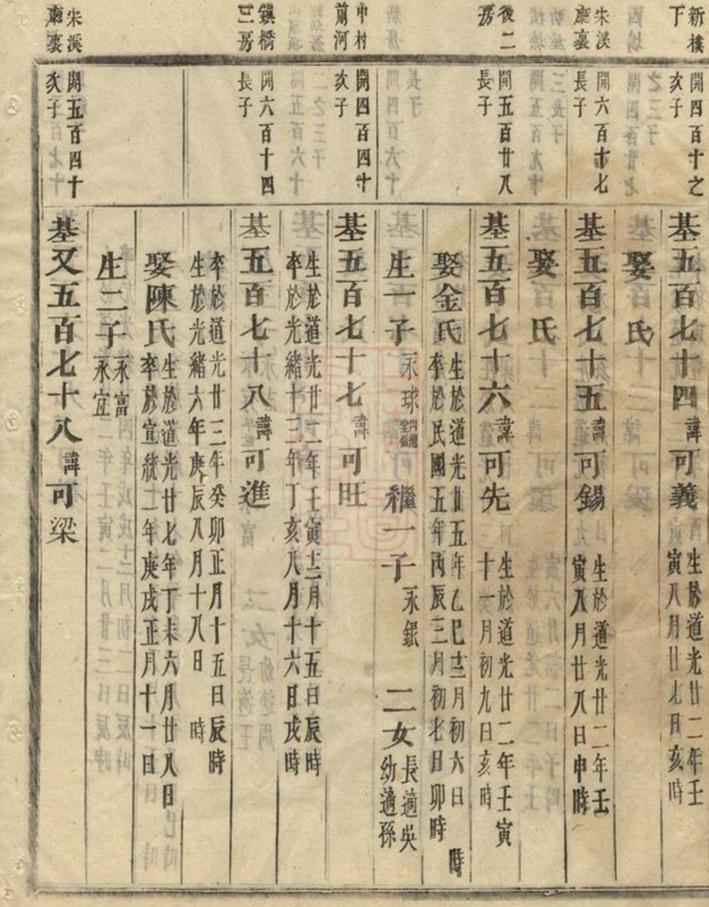 新樓下
開四百十之次子
基五百七十四諱可義
生於道光廿二年壬
寅八月廿七日亥時
娶 氏
朱溪廳裏
開六百廿七長子
基五百七十五諱可錫
生於道光廿二年壬
寅八月廿八日申時
娶 氏
後二房
開五百廿八長子
基五百七十六諱可先
生於道光廿二年壬寅
十一月初九日亥時
娶金氏
生於道光廿五年乙巳十二月初六日 時
卒於民國五年丙辰三月初七日卯時
生一子 永球
繼一子 永銀
二女 長適吳
幼適孫
中村前河
開四百四十次子
基五百七十七諱可旺
生於道光廿二年壬寅十二月十五日辰時
卒於光緒十三年丁亥八月十六日戌時
鎮橋三房
開六百十四長子
基五百七十八諱可進
生於道光廿三年癸卯正月十五日辰時
卒於光緒六年庚辰八月十八日 時
娶陳氏
生於道光廿七年丁未六月廿八日
卒於宣統二年庚戌正月十一日
生二子 永富
永宜
朱溪廳裏
開五百四十次子
基又五百七十八諱可梁